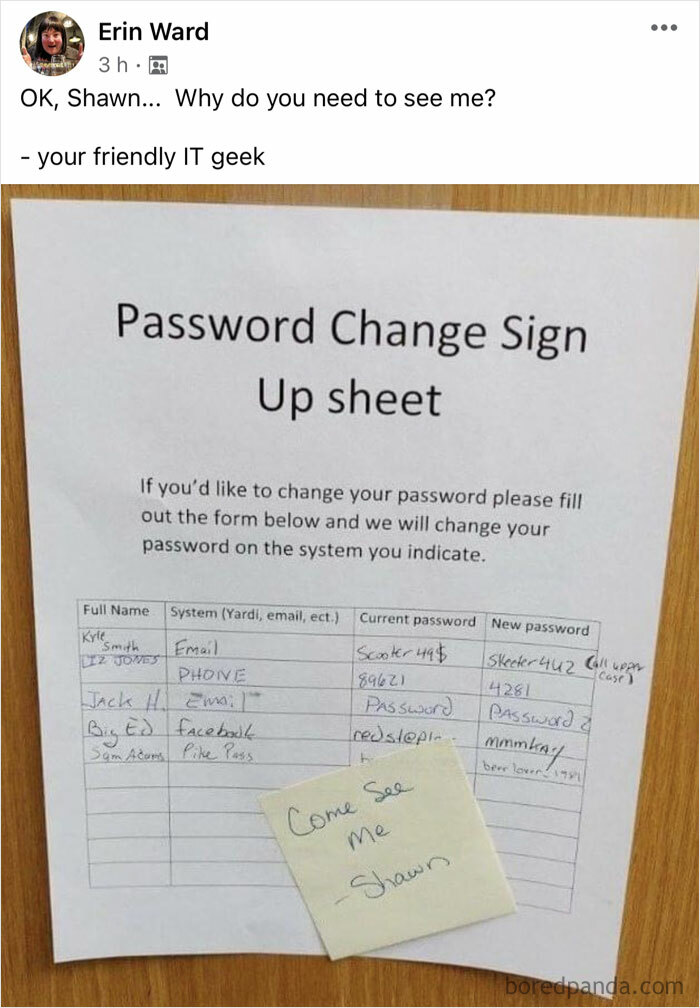 Erin Ward
3 h ·
OK, Shawn... Why do you need to see me?
- your friendly IT geek
Password Change Sign
Up sheet
If you'd like to change your password please fill
out the form below and we will change your
password on the system you indicate.
Full Name System (Yardi, email, ect.) Current password New password
Kyle Smith Email Scooter49$ Skeeter4U2 (all upper case)
LIZ JONES PHONE 89621 4281
Jack H. Email PASSword PASSword2
Big ED facebook mmmkay
Sam Adams Pike Pass beer lover
Come See
Me
- Shawn
boredpanda.com